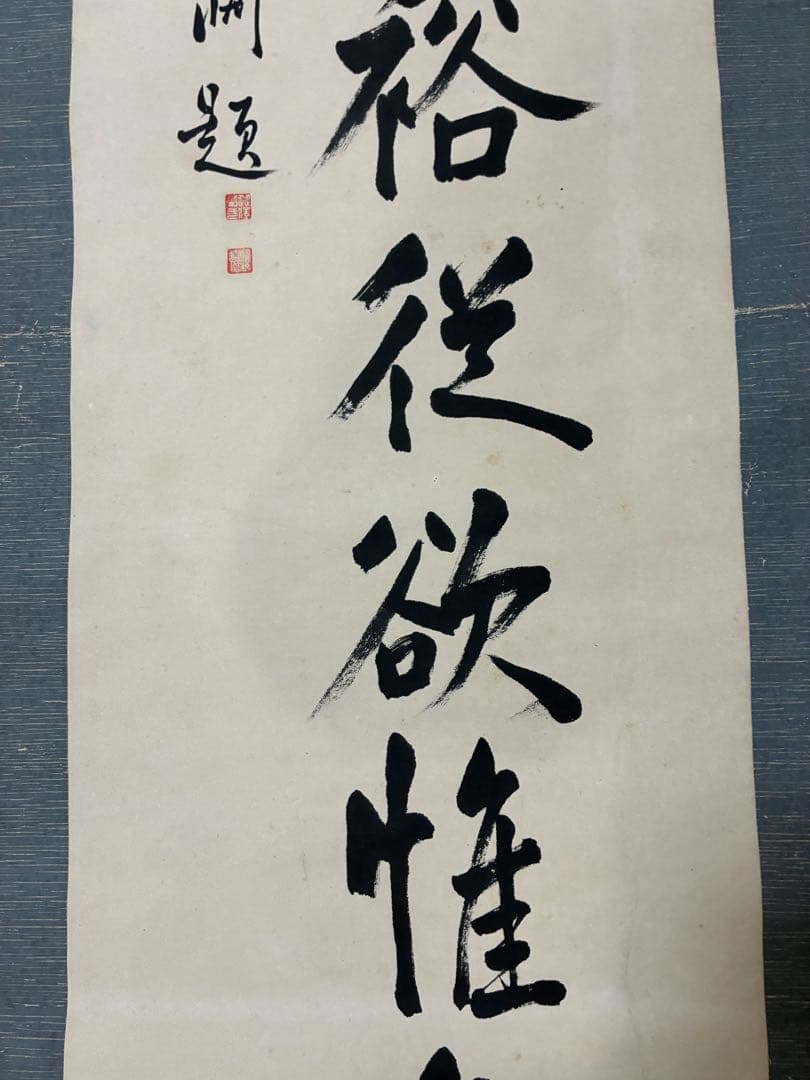 裕從欲惟
題